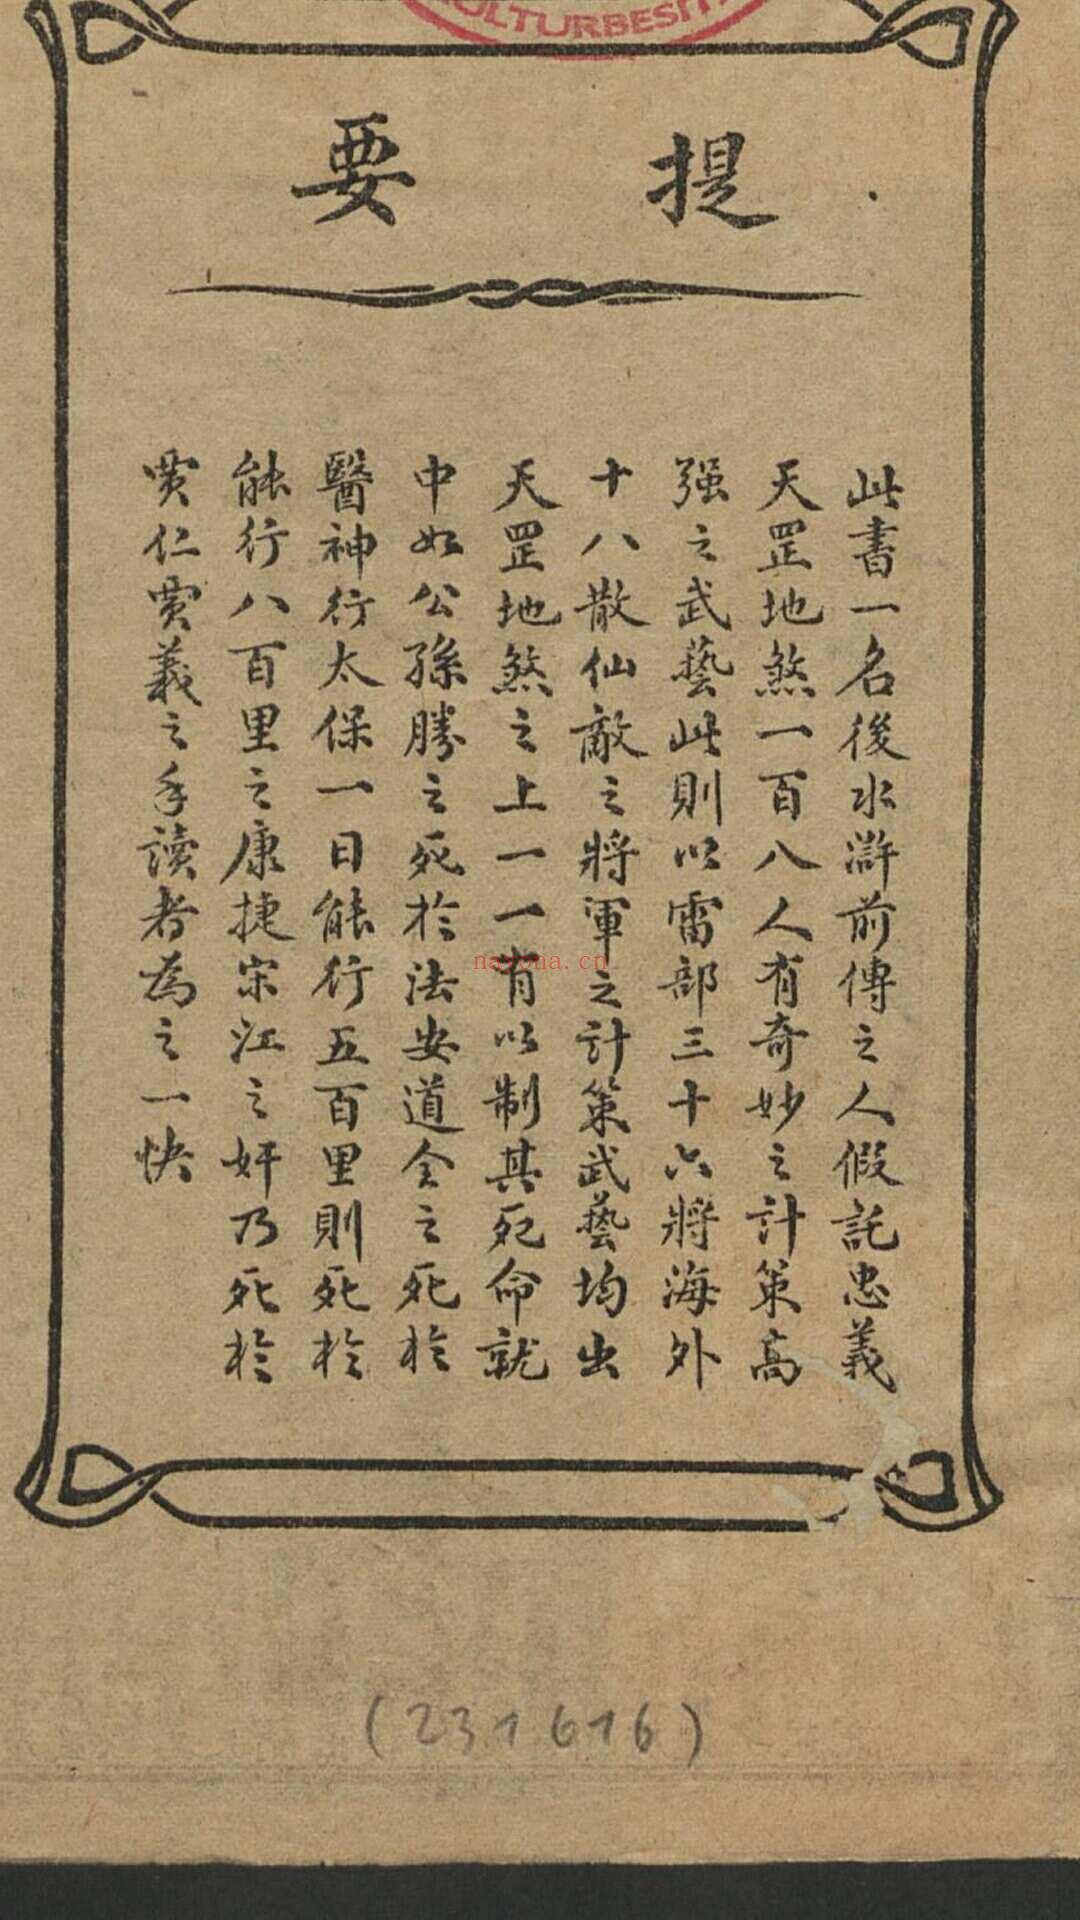 KULTURBESITZ
提要
此書一名後水滸前傳之人假託忠義
天罡地煞一百八人有奇妙之計策高
强之武藝此則以雷部三十六將海外
十八散仙敵之將軍之計策武藝均出
天罡地煞之上一一有以制其死命就
中如公孫勝之死於法安道全之死於
醫神行太保一日能行五百里則死於
能行八百里之康捷宋江之奸乃死於
賈仁賈義之手讀者為之一快
nayona.cn
(231616)